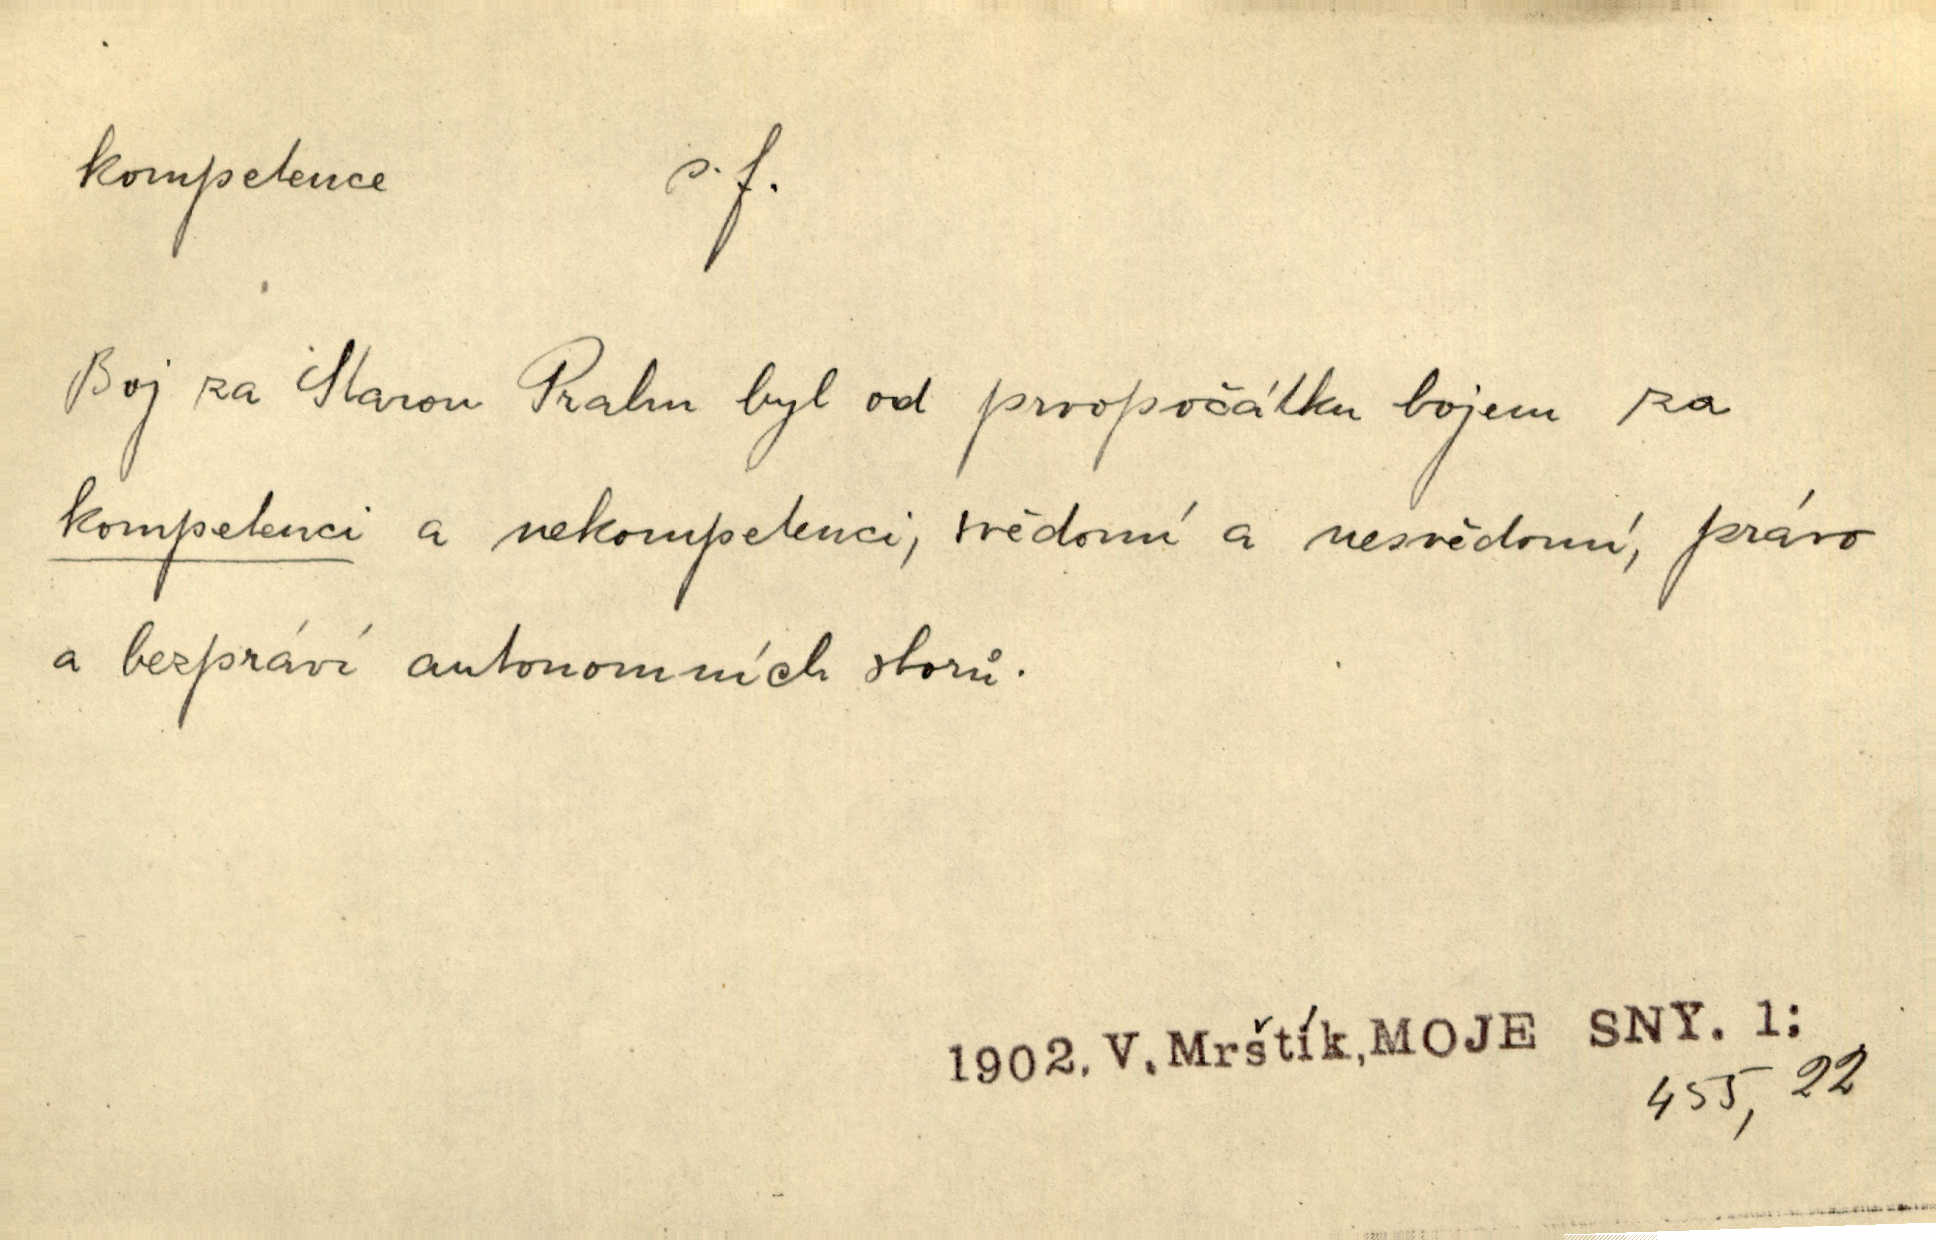 kompetence s. f.
Boj za Starou Prahu byl od prvopočátku bojem za
kompetenci a nekompetenci, svědomí a nesvědomí, právo
a bezpráví autonomních sborů.
1902. V. Mrštík, MOJE SNY. 1:
455, 22